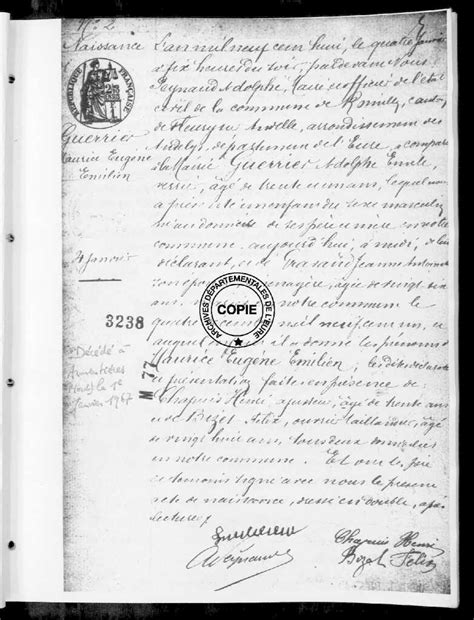 N° 2
Naissance
Guerrier
Maurice Eugène
Emilien
4 Janvier
3238
Décédé à
le 1er
février 1967
M 77
RÉPUBLIQUE FRANÇAISE
L'an mil neuf cent huit, le quatre Janvier
à six heures du soir, par devant Nous
Peynaud Adolphe, Maire et officier de l'état
civil de la commune de Romilly, canton
de Fleury sur Andelle, arrondissement des
Andelys, département de l'Eure, a comparu
à la Mairie Guerrier Adolphe Emile,
âgé de trente un ans, lequel nous
a présenté un enfant du sexe masculin,
commune, aujourd'hui, à midi, de lui
déclarant, et de Jeanne
ménagère, âgée de vingt six
ans, notre commune le
quatre mil neuf cent un, et
auquel il a donné les prénoms
Maurice Eugène Emilien; les dites déclaration
et présentation faites en présence de
Chapuis Henri, ajusteur, âgé de trente ans
et de Bizet Felix, ouvrier âgé
de vingt huit ans, tous deux domiciliés
en notre commune. Et ont le père
et témoins signé avec nous le présent
acte de naissance, dressé en double, après
lecture
ARCHIVES DÉPARTEMENTALES DE L'EURE
COPIE
Chapuis Henri
Bizet Felix